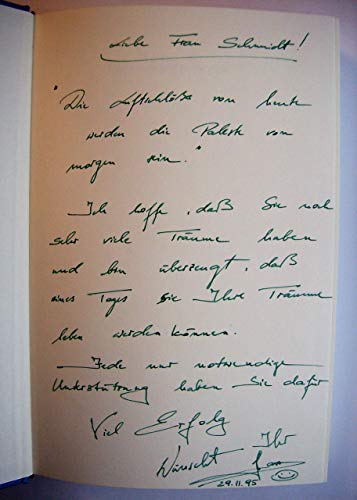 Liebe Frau Schmidt!
"Die Luftschlöße von heute
werden die Paläste von
morgen sein."
Ich hoffe, daß Sie
sehr viele Träume haben
und bin überzeugt, daß
eines Tages Sie Ihre Träume
leben werden können.
Jede nur notwendige
Unterstützung haben Sie dafür
Viel Erfolg
Wünscht Ihr
29.11.95